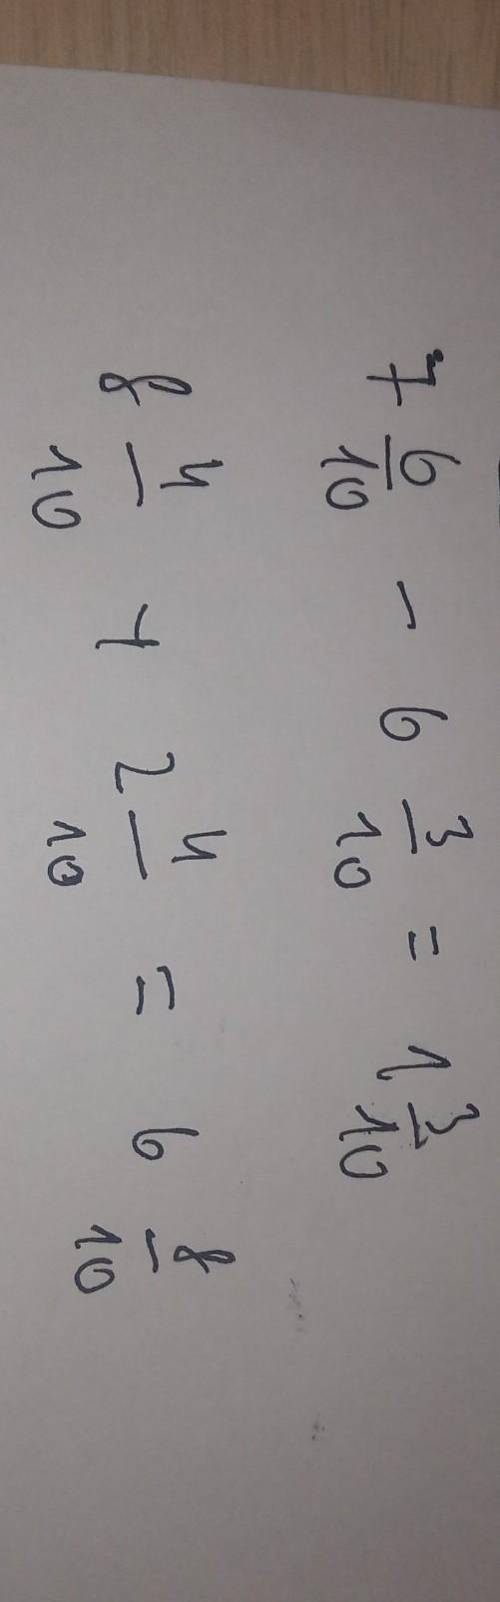 7 6/10 - 6 3/10 = 1 3/10
8 4/10 + 2 4/10 = 6 8/10